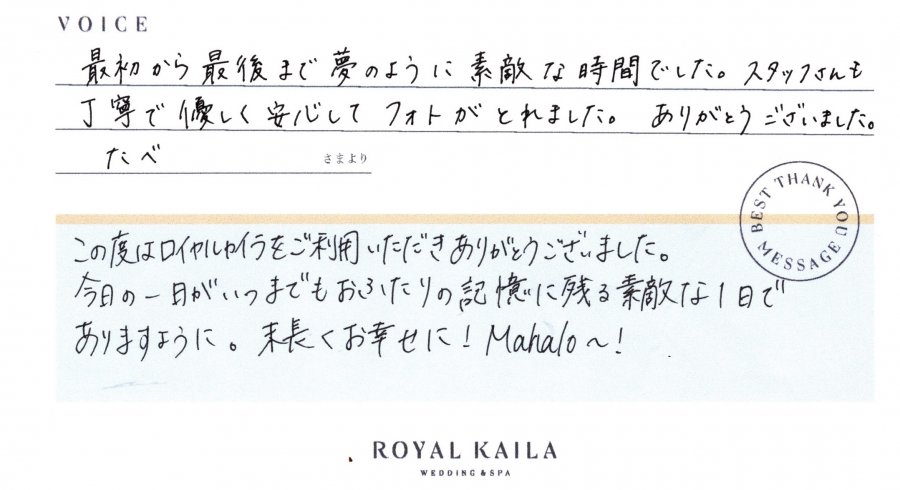 VOICE
最初から最後まで夢のように素敵な時間でした。スタッフさんも
丁寧で優しく安心してフォトがとれました。 ありがとうございました。
たべ さまより
BEST THANK YOU MESSAGE
この度はロイヤルカイラをご利用いただきありがとうございました。
今日の一日がいつまでもおふたりの記憶に残る素敵な1日で
ありますように。末長くお幸せに！Mahalo～！
ROYAL KAILA
WEDDING & SPA